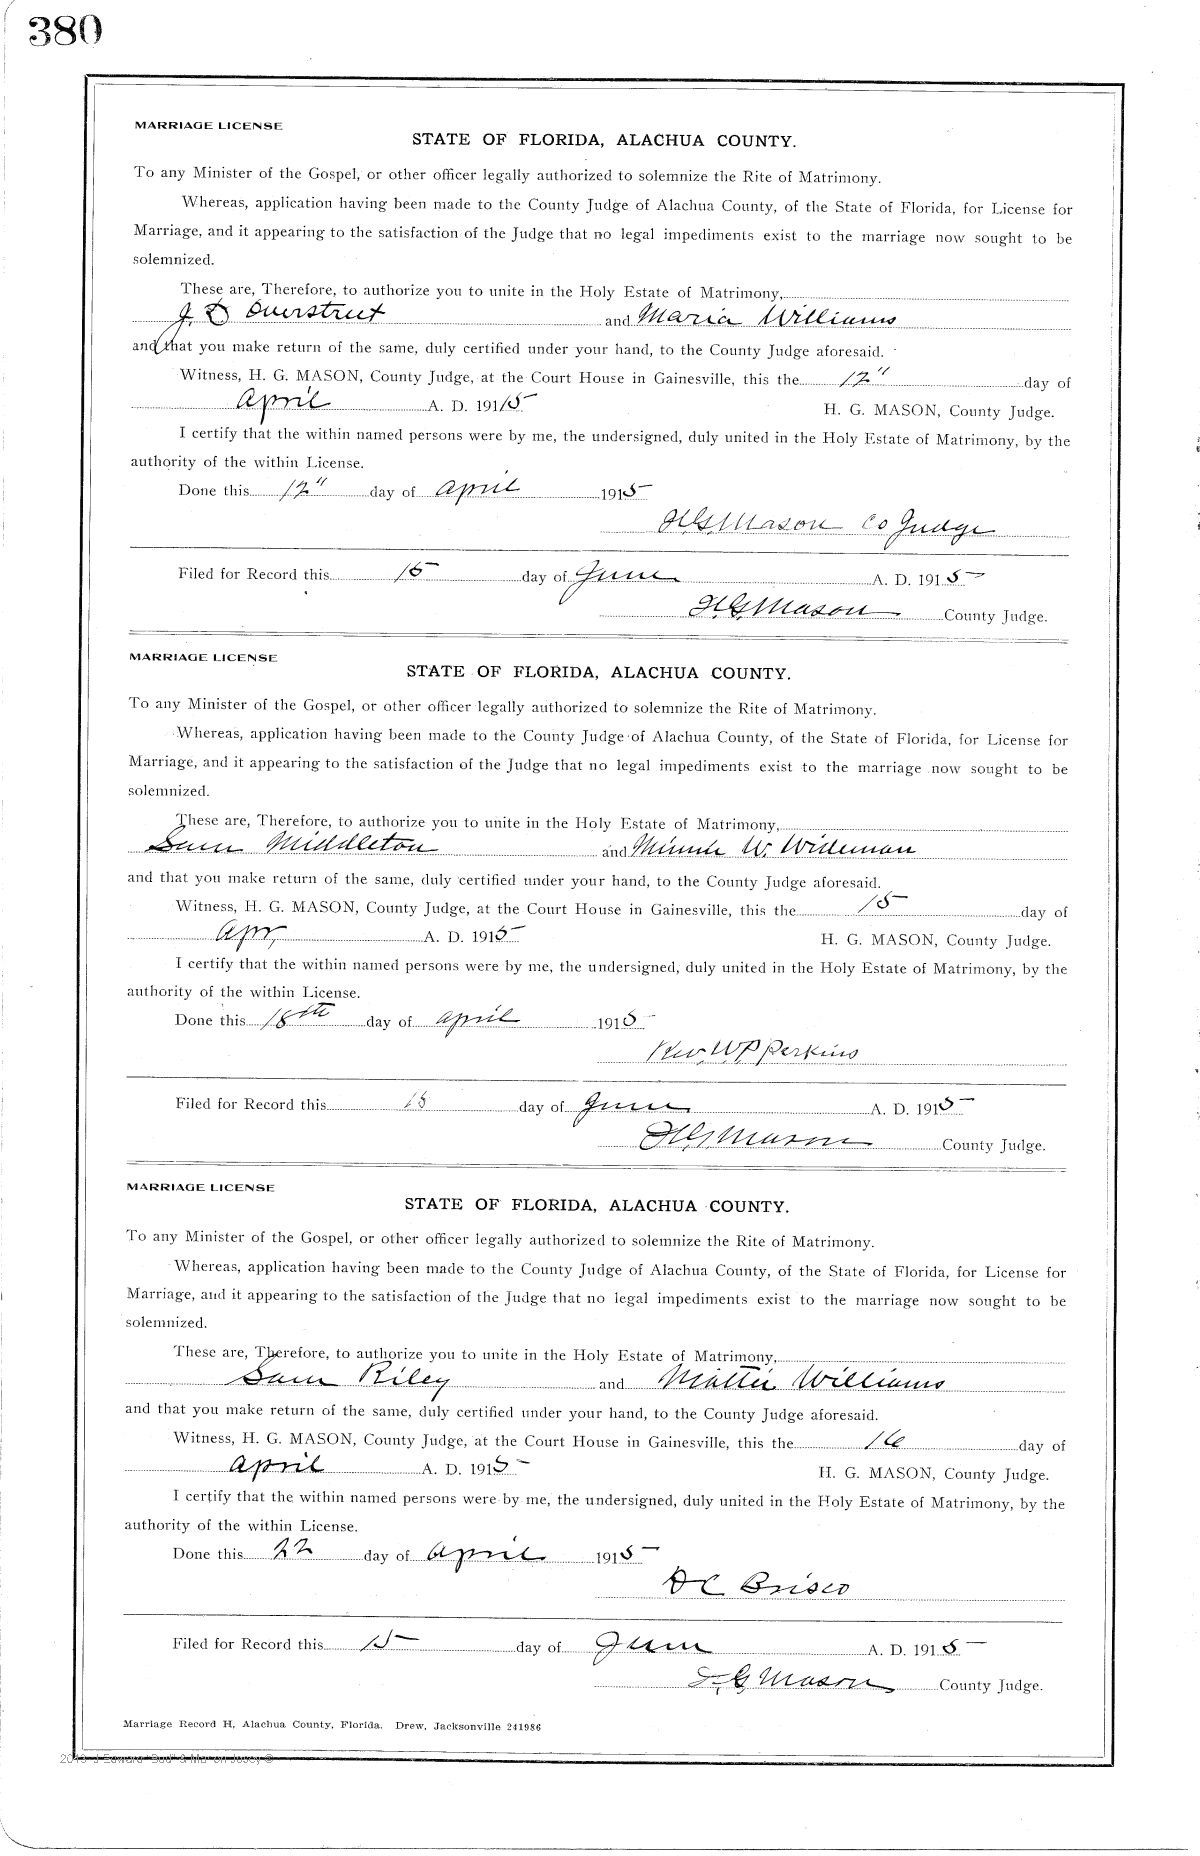 380
MARRIAGE LICENSE
STATE OF FLORIDA, ALACHUA COUNTY.
To any Minister of the Gospel, or other officer legally authorized to solemnize the Rite of Matrimony.
Whereas, application having been made to the County Judge of Alachua County, of the State of Florida, for License for
Marriage, and it appearing to the satisfaction of the Judge that no legal impediments exist to the marriage now sought to be
solemnized.
These are, Therefore, to authorize you to unite in the Holy Estate of Matrimony,
J. D Overstreet and Maria Williams
and that you make return of the same, duly certified under your hand, to the County Judge aforesaid.
Witness, H. G. MASON, County Judge, at the Court House in Gainesville, this the 12" day of
April A. D. 1915 H. G. MASON, County Judge.
I certify that the within named persons were by me, the undersigned, duly united in the Holy Estate of Matrimony, by the
authority of the within License.
Done this 12" day of April 1915
H.G. Mason Co Judge
Filed for Record this 15 day of June A. D. 1915
H.G. Mason County Judge.
MARRIAGE LICENSE
STATE OF FLORIDA, ALACHUA COUNTY.
To any Minister of the Gospel, or other officer legally authorized to solemnize the Rite of Matrimony.
Whereas, application having been made to the County Judge of Alachua County, of the State of Florida, for License for
Marriage, and it appearing to the satisfaction of the Judge that no legal impediments exist to the marriage now sought to be
solemnized.
These are, Therefore, to authorize you to unite in the Holy Estate of Matrimony,
Sam Middleton and Minnie W. Wideman
and that you make return of the same, duly certified under your hand, to the County Judge aforesaid.
Witness, H. G. MASON, County Judge, at the Court House in Gainesville, this the 15 day of
Apr, A. D. 1915 H. G. MASON, County Judge.
I certify that the within named persons were by me, the undersigned, duly united in the Holy Estate of Matrimony, by the
authority of the within License.
Done this 18th day of April 1915
Rev. W.P Perkins
Filed for Record this 15 day of June A. D. 1915
H.G. Mason County Judge.
MARRIAGE LICENSE
STATE OF FLORIDA, ALACHUA COUNTY.
To any Minister of the Gospel, or other officer legally authorized to solemnize the Rite of Matrimony.
Whereas, application having been made to the County Judge of Alachua County, of the State of Florida, for License for
Marriage, and it appearing to the satisfaction of the Judge that no legal impediments exist to the marriage now sought to be
solemnized.
These are, Therefore, to authorize you to unite in the Holy Estate of Matrimony,
Sam Riley and Mattie Williams
and that you make return of the same, duly certified under your hand, to the County Judge aforesaid.
Witness, H. G. MASON, County Judge, at the Court House in Gainesville, this the 16 day of
April A. D. 1915 H. G. MASON, County Judge.
I certify that the within named persons were by me, the undersigned, duly united in the Holy Estate of Matrimony, by the
authority of the within License.
Done this 22 day of April 1915
D C Brisco
Filed for Record this 15 day of June A. D. 1915
H.G. Mason County Judge.
Marriage Record H, Alachua County, Florida. Drew, Jacksonville 241986